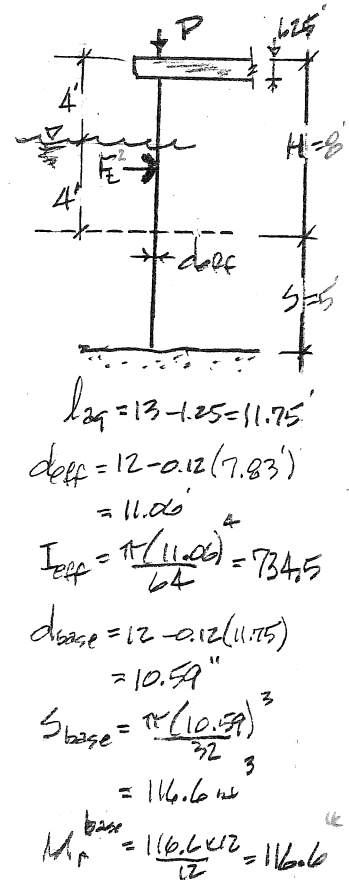 P
1.25'
4'
H=8'
4'
deff
S=5'
lag = 13 -1.25 = 11.75'
deff = 12 -0.12(7.83')
= 11.06'
Ieff = π(11.06)^4/64 = 734.5
dbase = 12 -0.12(11.75)
= 10.59"
Sbase = π(10.59)^3/32
= 116.6 in^3
Mr^base = 116.6 x12/12 = 116.6 'k